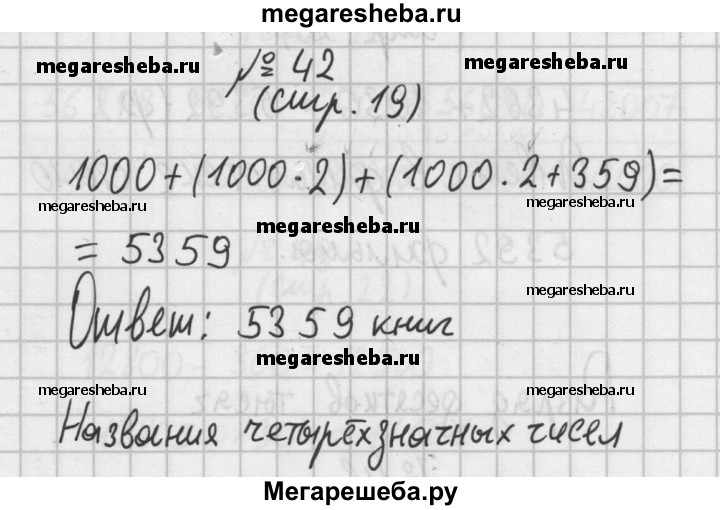 megaresheba.ru
megaresheba.ru № 42 megaresheba.ru
(стр. 19)
1000+(1000·2)+(1000·2+359)=
megaresheba.ru megaresheba.ru megaresheba.ru
= 5359
Ответ: 5359 книг
megaresheba.ru
megaresheba.ru
megaresheba.ru megaresheba.ru
Названия четырёхзначных чисел
Мегарешеба.ру